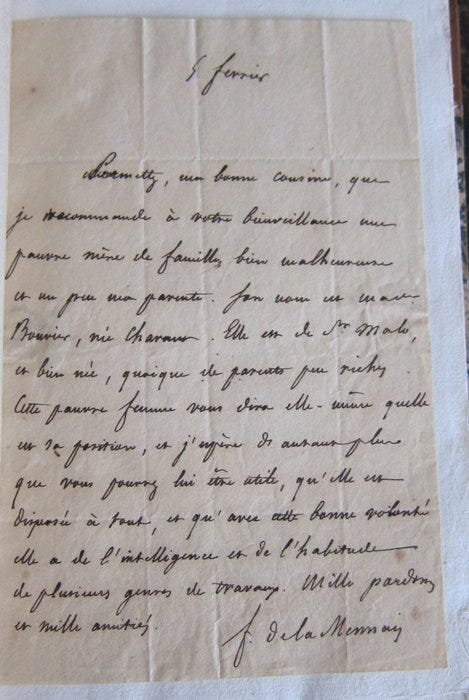 5 février
Permettez, ma bonne cousine, que
je recommande à votre bienveillance une
pauvre mère de famille, bien malheureuse
et un peu ma parente. Son nom est
Bouvier, née Charaux. Elle est de St Malo,
et bien née, quoique de parents peu riches.
Cette pauvre femme vous dira elle-même quelle
est sa position, et j'espère d'autant plus
que vous pourrez lui être utile, qu'elle est
disposée à tout, et qu'avec cette bonne volonté
elle a de l'intelligence et de l'habitude
de plusieurs genres de travaux. Mille pardons
et mille amitiés.
f. de la Mennais